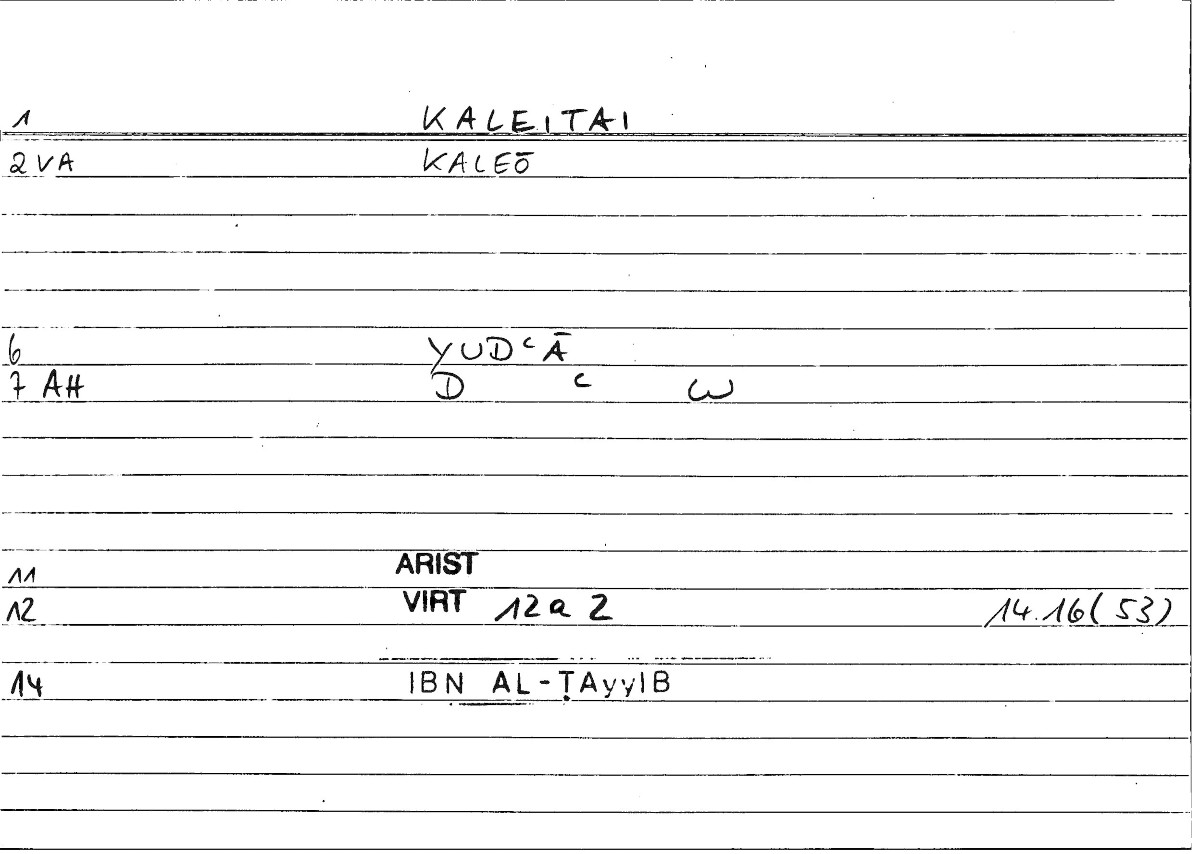 1 KALEITAI
2 VA KALEŌ
6 YUDʿĀ
7 AH D ʿ W
11 ARIST
12 VIRT 12 a 2 14.16(53)
14 IBN AL-ṬAyyIB